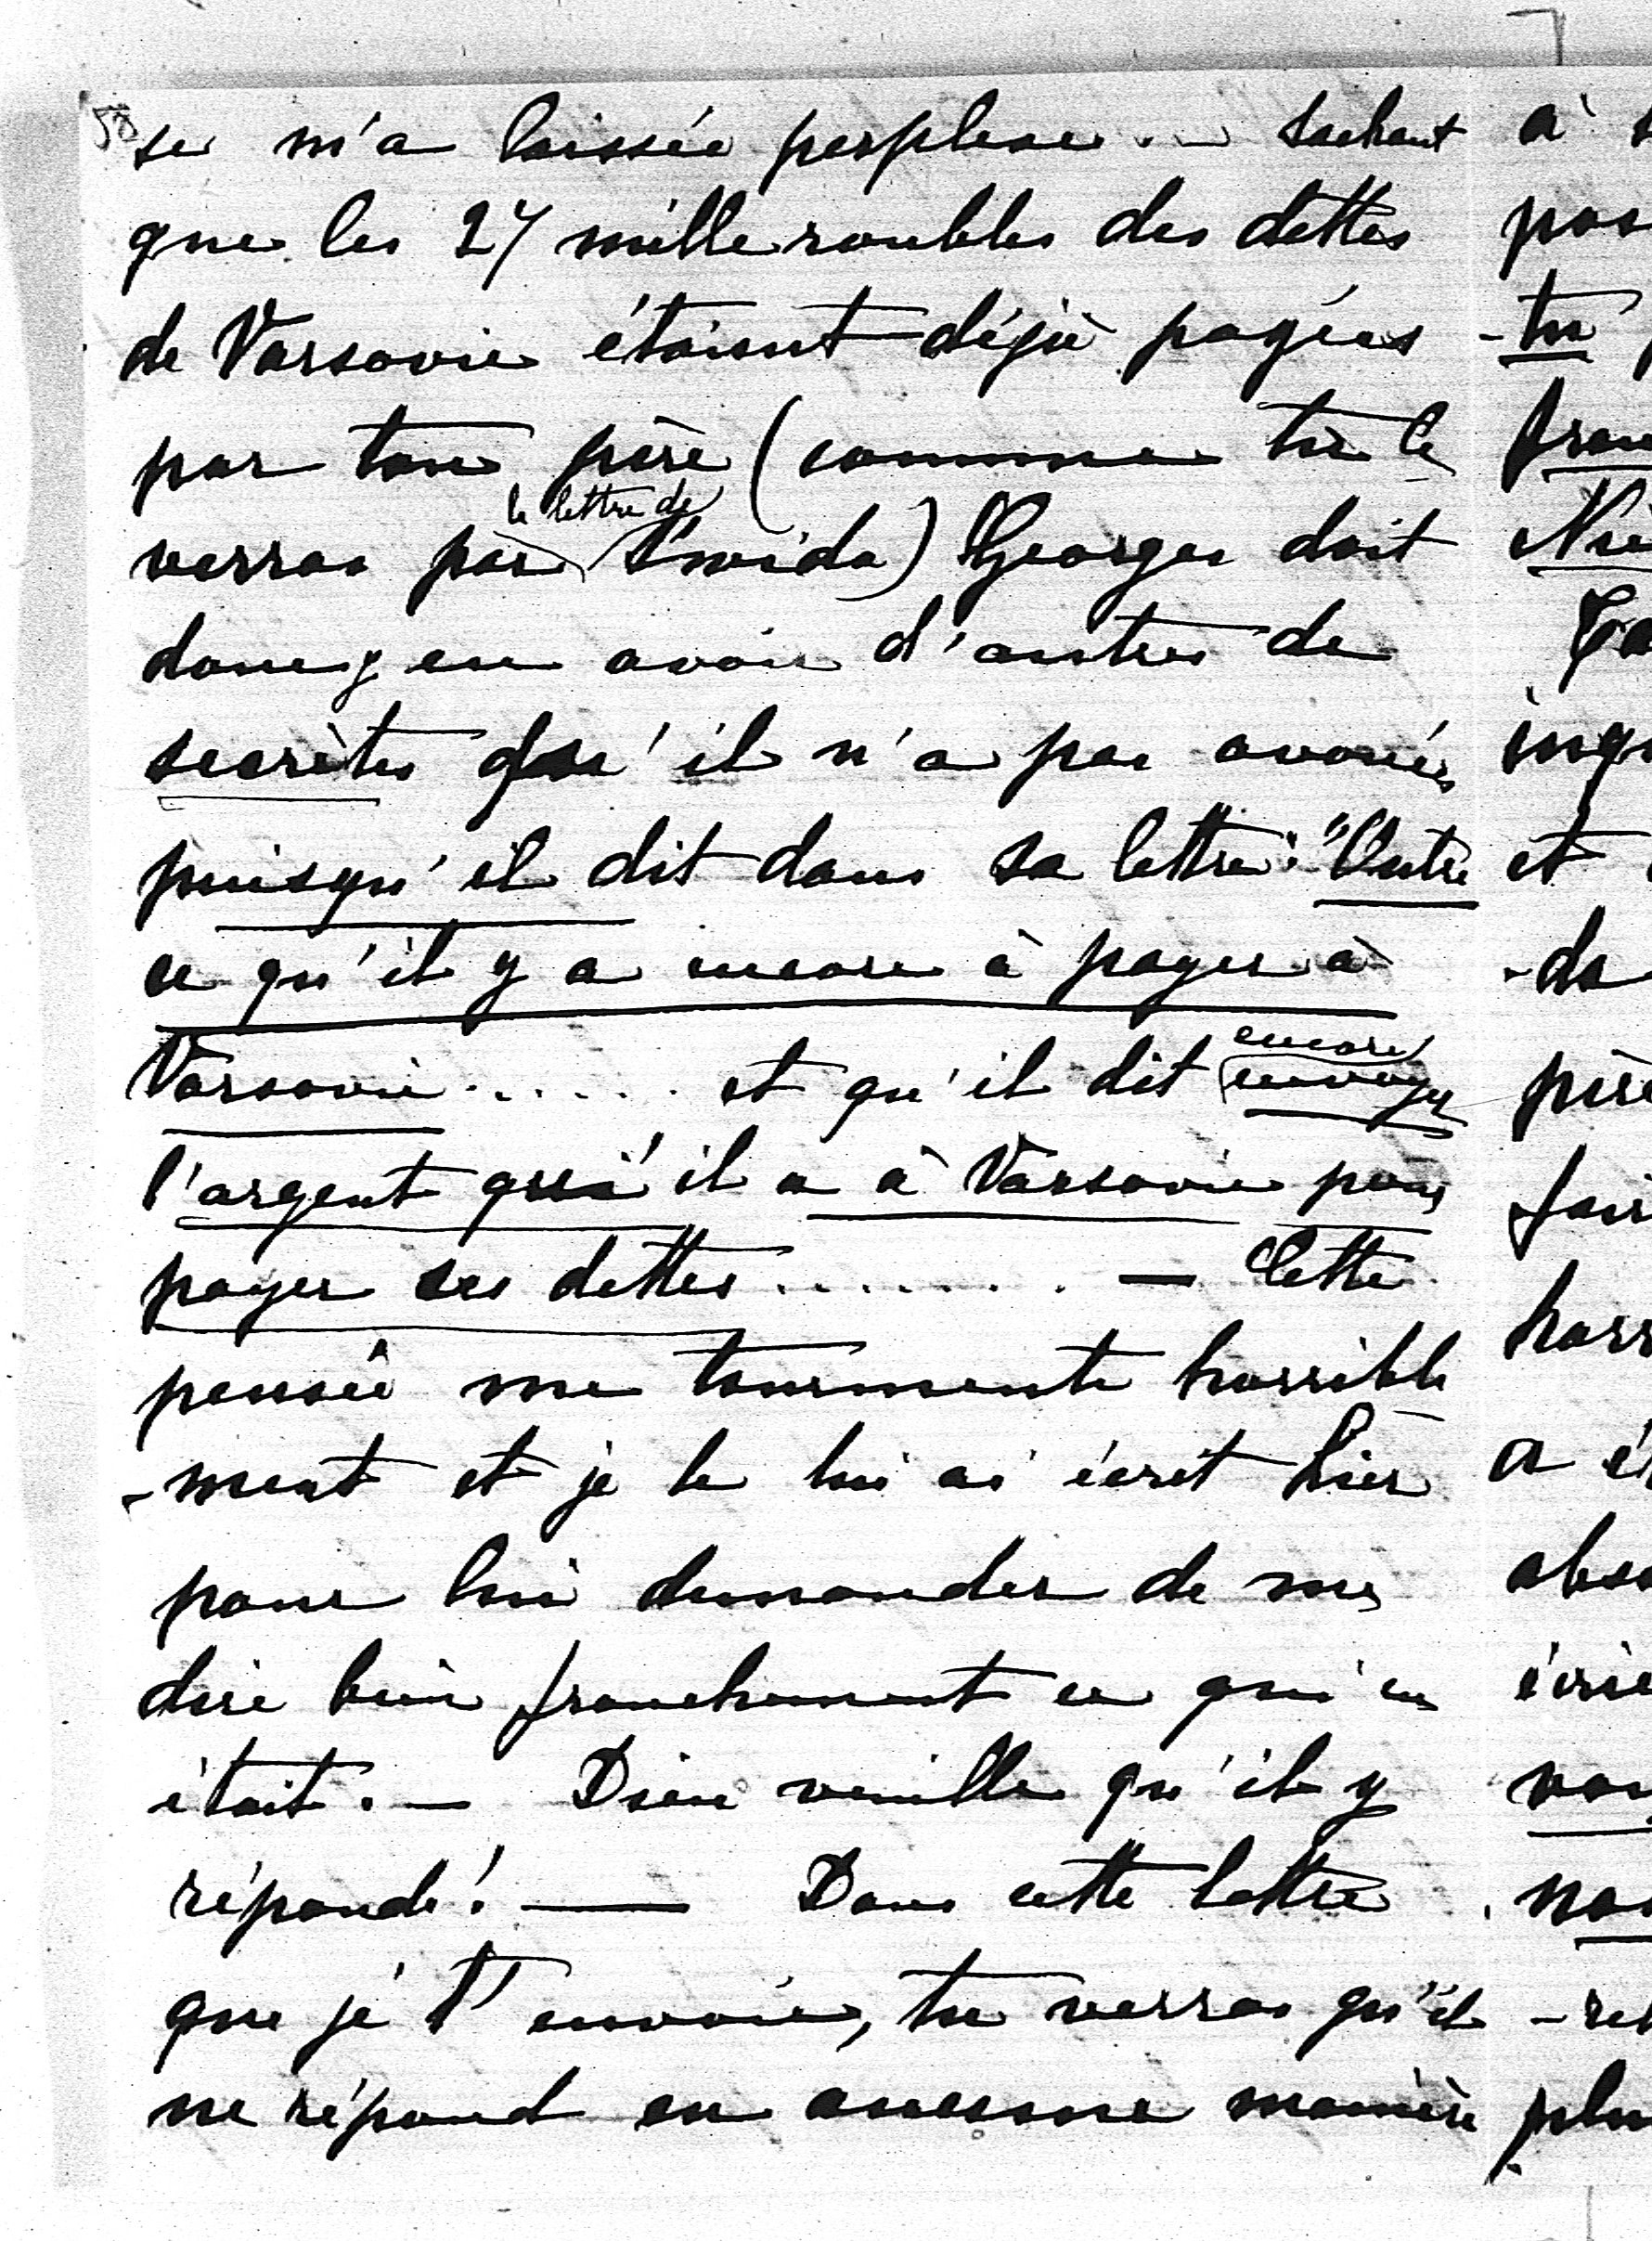 se m'a laissée perplexe. — Sachant
que les 27 mille roubles des dettes
de Varsovie étaient déjà payées
par ton père (comme tu le
verras par la lettre de) Georges doit
donc en avoir d'autres de
secrètes qu'il n'a pas avouées
puisqu'il dit dans sa lettre: "Outre
ce qu'il y a encore à payer à
Varsovie..... et qu'il dit encore envoyer
l'argent qu'il a à Varsovie pour
payer ses dettes....... — Cette
pensée me tourmente horrible
-ment et je le lui ai écrit hier
pour lui demander de me
dire bien franchement ce qui en
était. — Dieu veuille qu'il y
réponde! — Dans cette lettre
que je t'envoie, tu verras qu'il
ne répond en aucune manière
à
pas
-tu
et
-da
père
fair
horr
a é
abso
plu